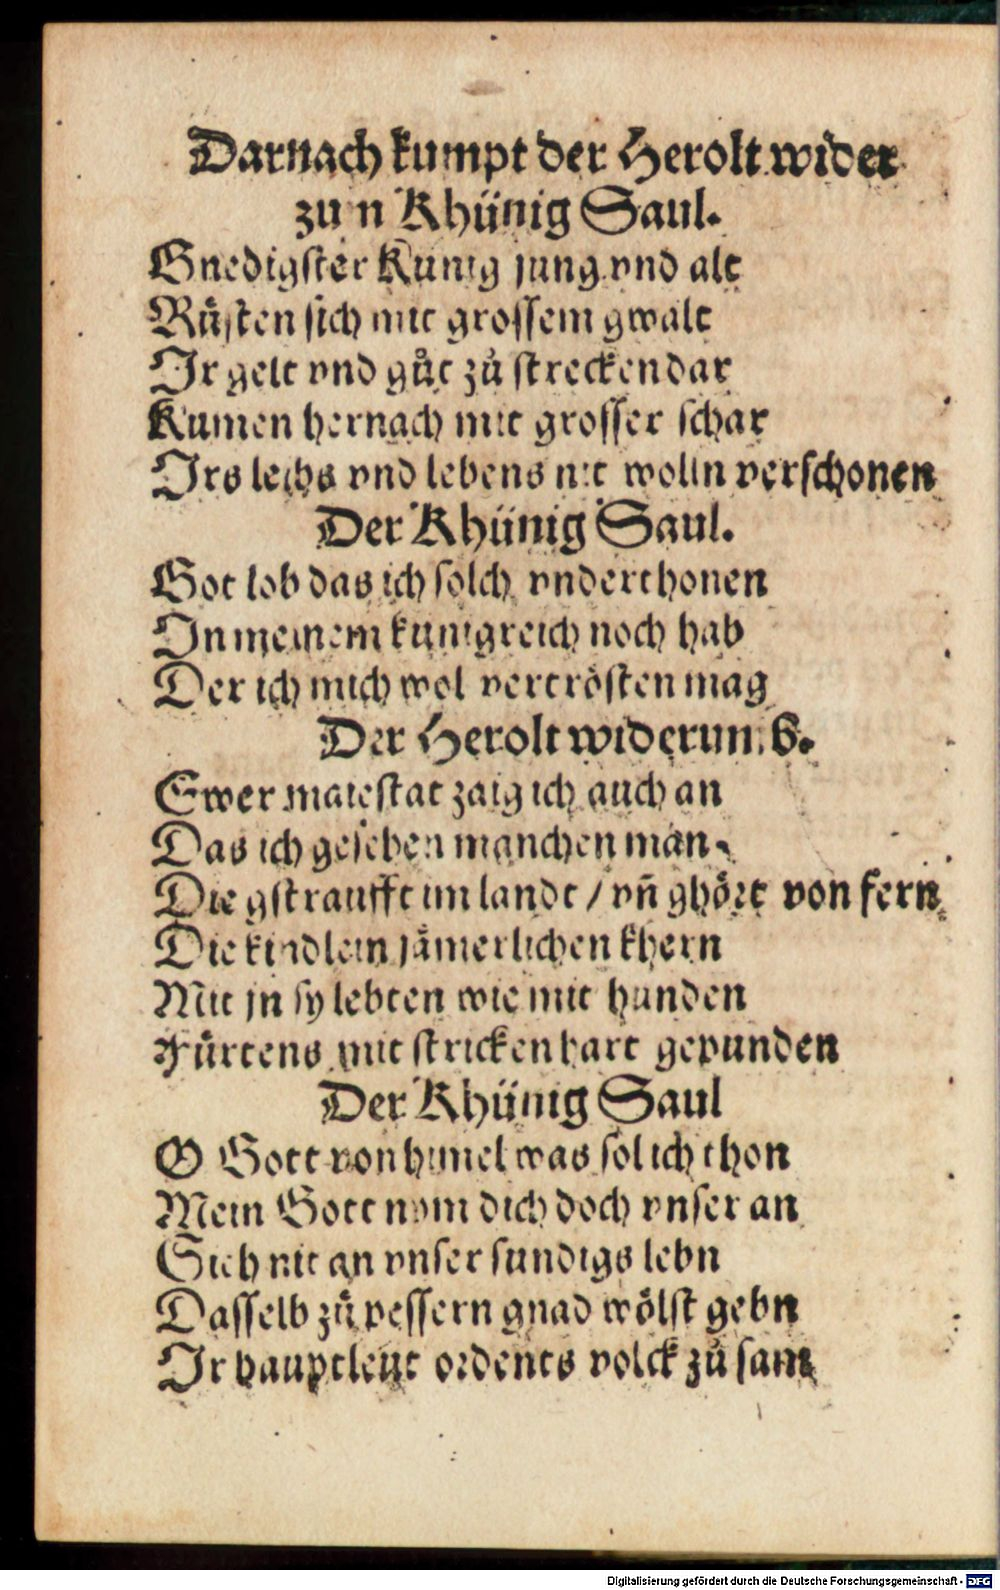 Darnach kumpt der Herolt wider
zum Khünig Saul.
Gnedigster Kunig jung vnd alt
Rüsten sich mit grossem gwalt
Ir gelt vnd gůt zů strecken dar
Kumen hernach mit grosser schar
Irs leibs vnd lebens nit wolln verschonen
Der Khünig Saul.
Got lob das ich solch vnderthonen
In meinem kunigreich noch hab
Der ich mich wol vertrösten mag
Der Herolt widerumb.
Ewer maiestat zaig ich auch an
Das ich gesehen manchen man
Die gstraufft im landt / vñ ghört von fern
Die kindlein jämerlichen khern
Mit jn sy lebten wie mit hunden
Fürtens mit stricken hart gepunden
Der Khünig Saul
O Gott von himel was sol ich thon
Mein Gott nym dich doch vnser an
Sieh nit an vnser sundigs lebn
Dasselb zů pessern gnad wölst gebn
Ir hauptleut ordents volck zů sam
Digitalisierung gefördert durch die Deutsche Forschungsgemeinschaft - DFG